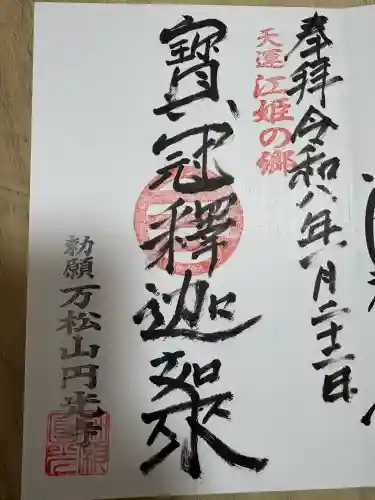 奉拝令和八年一月二十二日
天運江姫の郷
寶冠釋迦如来
勅願万松山円光寺